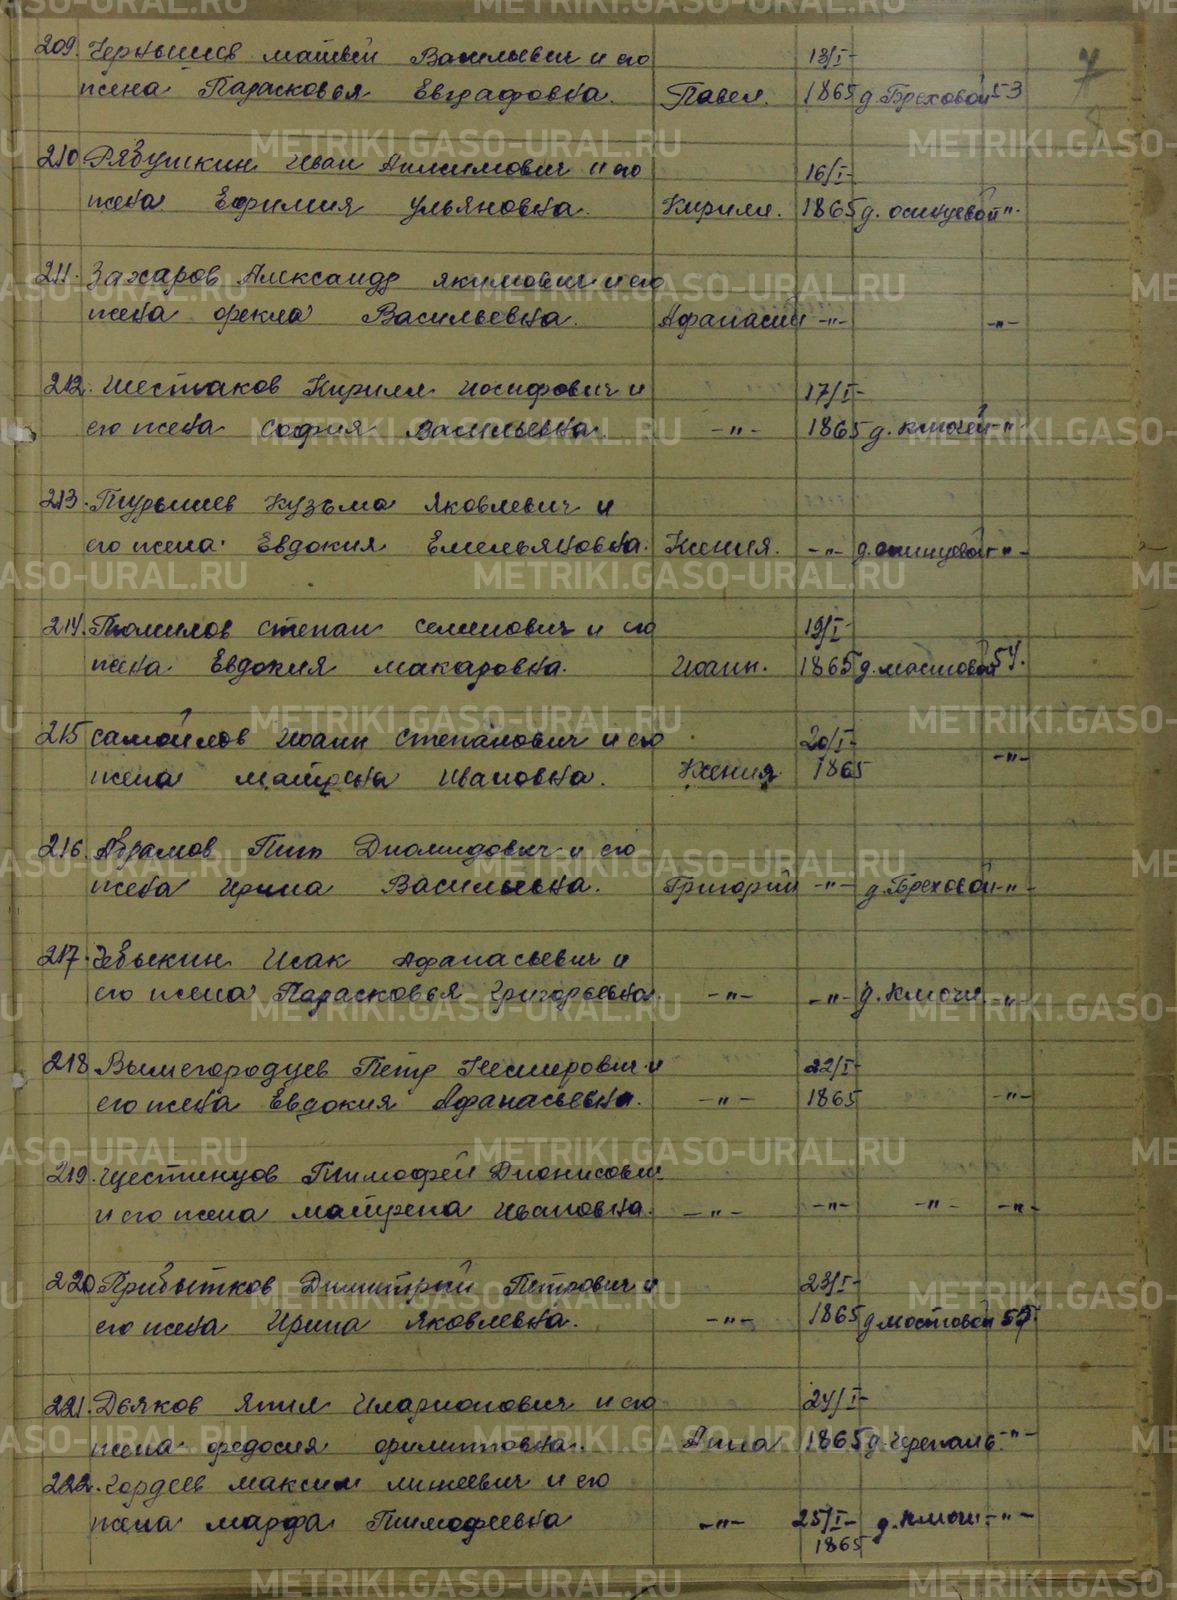 7
209. Чернышев Матвей Васильевич и его 13/I-
жена Парасковья Евграфовна. Павел. 1865 д. Бреховой 53
210 Рябушкин Иван Анисимович и его 16/I-
жена Ефимия Ульяновна. Кирилл. 1865 д. Осинцевой -"-
211. Захаров Александр Якимович и его
жена Фекла Васильевна. Афанасий -"- -"-
212. Шестаков Кирилл Иосифович и 17/I-
его жена София Васильевна. -"- 1865 д. Ключей -"-
213. Турышев Кузьма Яковлевич и
его жена Евдокия Емельяновна. Ксения. -"- д. Осинцевой -"-
214. Томилов Степан Семенович и его 19/I-
жена Евдокия Макаровна. Иоанн. 1865 д. Мостовой 54.
215 Самойлов Иоанн Степанович и его 20/I- -"-
жена Матрена Ивановна. Ксения 1865
216. Абрамов Тит Диомидович и его
жена Ирина Васильевна. Григорий -"- д. Бреховой -"-
217. Чебыкин Исак Афанасьевич и
его жена Парасковья Григорьевна. -"- -"- д. Ключи -"-
218 Вышегородцев Петр Несторович и 22/I-
его жена Евдокия Афанасьевна. -"- 1865 -"-
219. Щестинцов Тимофей Дионисович
и его жена Матрена Ивановна. -"- -"- -"- -"-
220 Прибытков Димитрий Петрович и 23/I-
его жена Ирина Яковлевна. -"- 1865 д Мостовой 55.
221. Дьяков Иларионович и его 24/I-
жена Федосия Филипповна. Анна 1865 д. Черепань -"-
222. Гордеев Максим и его
жена Марфа Тимофеевна -"- 25/I- д. Ключи -"-
1865
METRIKI.GASO-URAL.RU